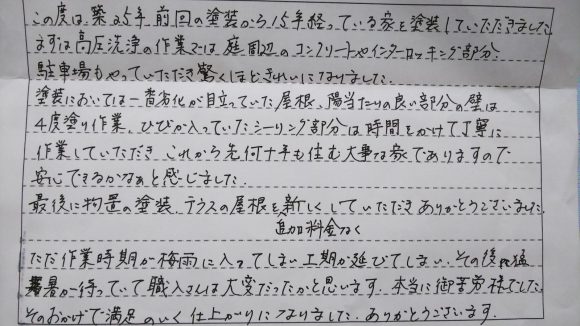 この度は、築25年 前回の塗装から15年経っている家を塗装していただきました
まずは高圧洗浄の作業では、庭、周辺のコンクリートやインターロッキング部分、
駐車場もやっていただき驚くほどきれいになりました。
塗装においては一番劣化が目立っていた屋根、陽当たりの良い部分の壁は
4度塗り作業、ひびが入っていたシーリング部分は時間をかけて丁寧に
作業していただき これから先何十年も住む大事な家でありますので
安心できるかなぁと感じました。
最後に物置の塗装、テラスの屋根を新しくしていただき ありがとうございました。
追加料金なく
ただ作業時期が梅雨に入ってしまい工期が延びてしまい、その後 猛
暑が待っていて職人さんは大変だったかと思います。本当に御苦労様でした。
そのおかげで満足のいく仕上がりになりました。ありがとうございます。